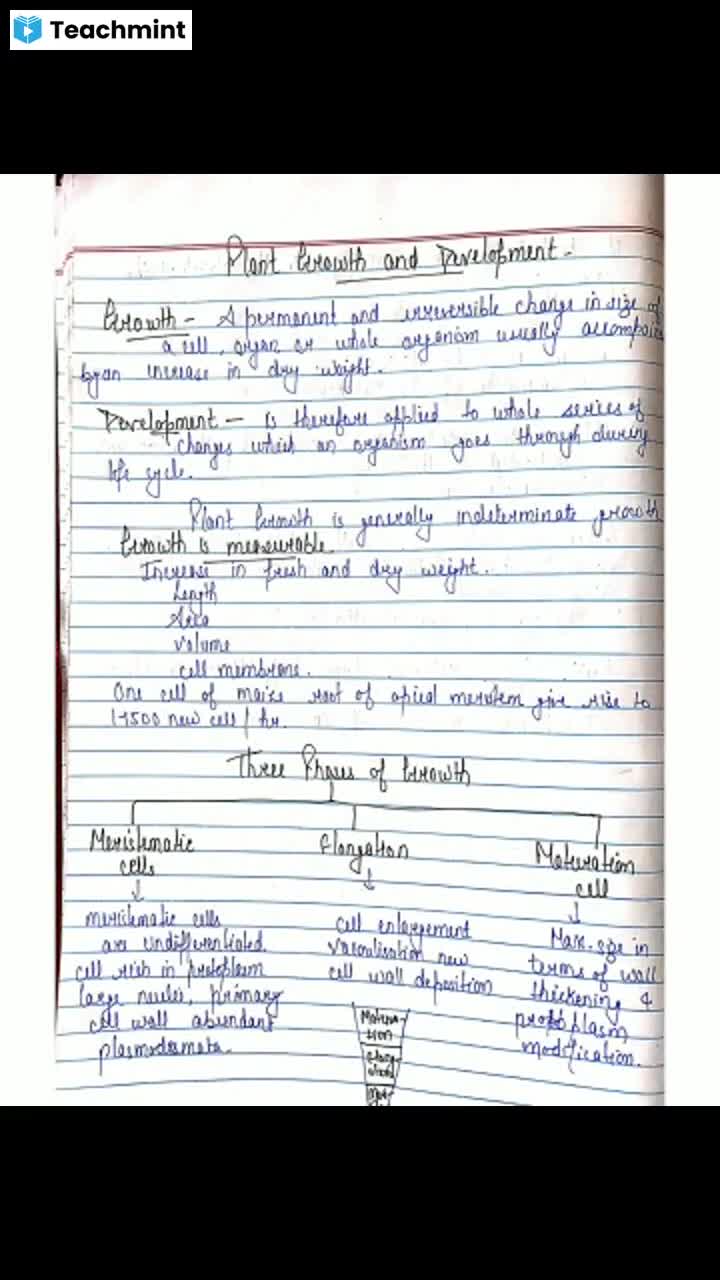 Teachmint
Plant Growth and Development.
Growth - A permanent and irreversible change in size of
a cell, organ or whole organism usually accompai
by an increase in dry weight.
Development - is therefore applied to whole series of
changes which an organism goes through during
life cycle.
Plant Growth is generally indeterminate growth
Growth is measurable.
Increase in fresh and dry weight.
Length
Area
Volume
cell membrane.
One cell of maize root of apical meristem give rise to
17500 new cell / hr.
Three Phases of Growth
Meristematic Elongation Maturation
cells cell
meristematic cells
are undifferentiated.
cell rich in protoplasm
large nuclei, primary
cell wall abundant
plasmodesmata.
cell enlargement
vacuolisation new
cell wall deposition
Max. size in
terms of wall
thickening &
protoplasm
modification.
Matura-
tion